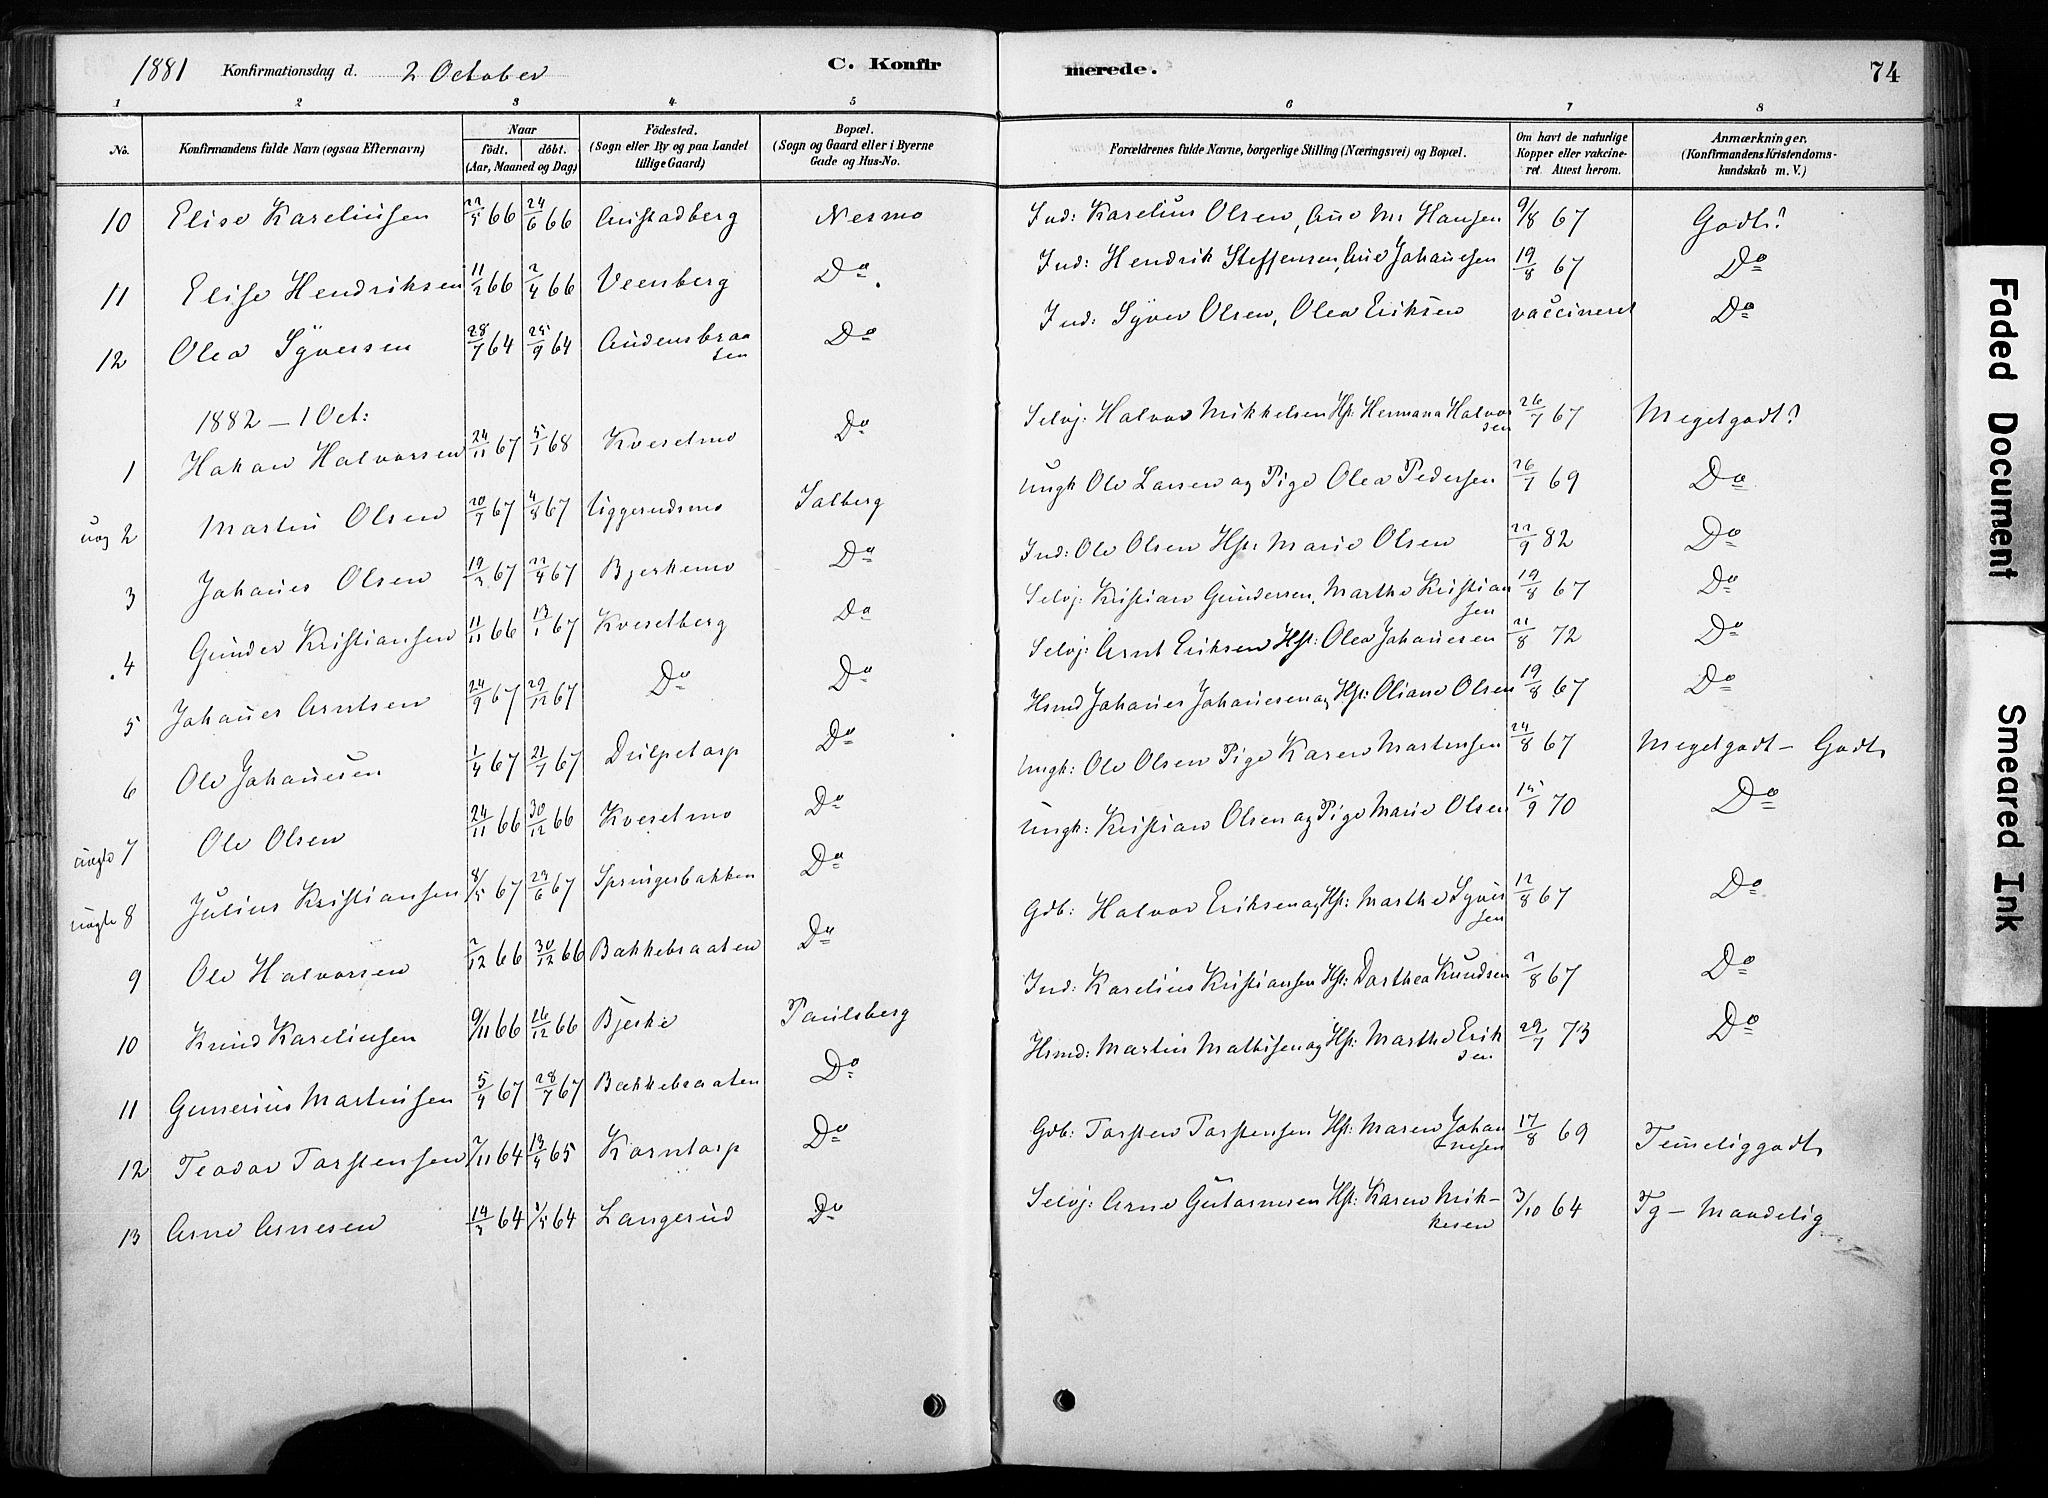 1881 Konfirmationsdag d. 2 October C. Konfirmerede. 74
1 2 3 4 5 6 7 8
No. Konfirmandens fulde Navn (ogsaa Efternavn) Naar födt. döbt. (Aar, Maaned og Dag) Födested. (Sogn eller By og paa Landet tillige Gaard) Bopæl. (Sogn og Gaard eller i Byerne Gade og Hus-No. Forældrenes fulde Navne, borgerlige Stilling (Næringsvei) og Bopæl. Om havt de naturlige Kopper eller vakcineret. Attest herom. Anmærkninger. (Konfirmandens Kristendomskundskab m. V.)
10 Elise Kareliussen 22/5 66 24/6 66 Austadberg Nesmo Ind: Karelius Olsen, Ane M. Hansen 9/8 67 Godt?
11 Elise Hendriksen 11/2 66 2/4 66 Veenberg Do. Ind: Hendrik Steffensen, Ane Johannesen 19/8 67 Do
12 Olea Syversen 28/7 64 25/9 64 Audensbraasen Do Ind: Syver Olsen, Olea Eriksen vaccineret Do
1882 – 1 Oct:
1 Hakan Halvorsen 24/11 67 5/1 68 Kvesetmo Do Selvj: Halvor Mikkelsen Hst: Hermana Halvorsen 26/7 67 Megetgodt?
uæg 2 Martin Olsen 20/7 67 4/8 67 Uggerudsmo Salberg Ungk Ole Larsen og Pige Olea Pedersen 26/7 69 Do
3 Johanes Olsen 19/3 67 22/4 67 Bjerkemo Do Ind: Ole Olsen Hst: Marie Olsen 22/9 82 Do
4 Gunder Kristiansen 11/11 66 13/1 67 Kvesetberg Do Selvj: Kristian Gundersen, Marthe Kristiansen 19/8 67 Do
5 Johanes Arntsen 24/9 67 29/12 67 Do Do Selvj: Arnt Eriksen Hst: Olea Johanesen 21/8 72 Do
6 Ole Johanesen 1/4 67 21/7 67 Dulpetorp Do Hsmd Johanes Johanesen og Hst: Oliane Olsen 19/8 67 Do
uægte 7 Ole Olsen 24/11 66 30/12 66 Kvesetmo Do Ungk: Ole Olsen Pige Karen Martinsen 24/8 67 Megetgodt – Godt
uægte 8 Julius Kristiansen 8/5 67 23/6 67 Springerbakken Do Ungk: Kristian Olsen og Pige Marie Olsen 15/9 70 Do
9 Ole Halvorsen 2/12 66 30/12 66 Bakkebraaten Do Gdb: Halvor Eriksen og Hst: Marthe Syversen 12/8 67 Do
10 Knud Kareliusen 9/11 66 26/12 66 Bjerke Paulsberg Ind: Karelius Kristiansen Hst: Dorthea Knudsen 2/8 67 Do
11 Gunerius Martinsen 5/4 67 28/7 67 Bakkebraaten Do Hsmd: Martin Mathisen og Hst: Marthe Eriksen 29/7 73 Do
12 Teodor Torstensen 2/11 64 13/4 65 Korntorp Do Gdb: Torsten Torstensen Hst: Maren Johannesen 17/8 69 Temeliggodt
13 Arne Arnesen 14/3 64 1/5 64 Langerud Do Selvj: Arne Gutormsen Hst: Karen Mikkesen 3/10 64 Tg – Maadelig
Faded Document
Smeared Ink